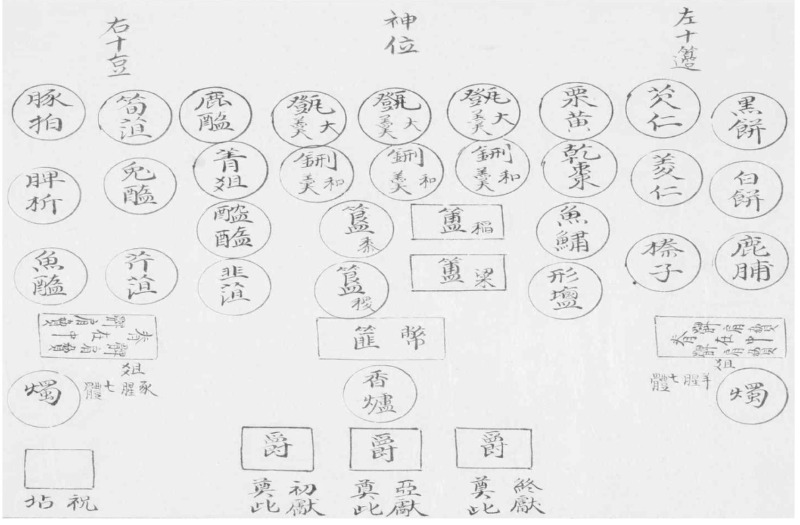 神位
左十籩
右十豆
黑餠
白餠
鹿脯
芡仁
菱仁
榛子
栗黃
乾棗
魚鱐
形塩
甑 大羹
甑 大羹
甑 大羹
鉶 和羹
鉶 和羹
鉶 和羹
簠 稻
簠 梁
簋 黍
簋 稷
鹿醢
菁俎
醓醢
韭菹
筍菹
兎醢
芹菹
豚拍
脾析
魚醢
俎
羊腥七體
燭
篚 幣
香爐
俎
豕腥七體
燭
爵
終獻奠此
爵
亞獻奠此
爵
初獻奠此
祝坫